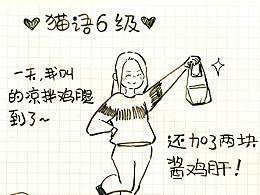 猫语6级
一天，我叫
的凉拌鸡腿
到了~
还加了两块
酱鸡肝！